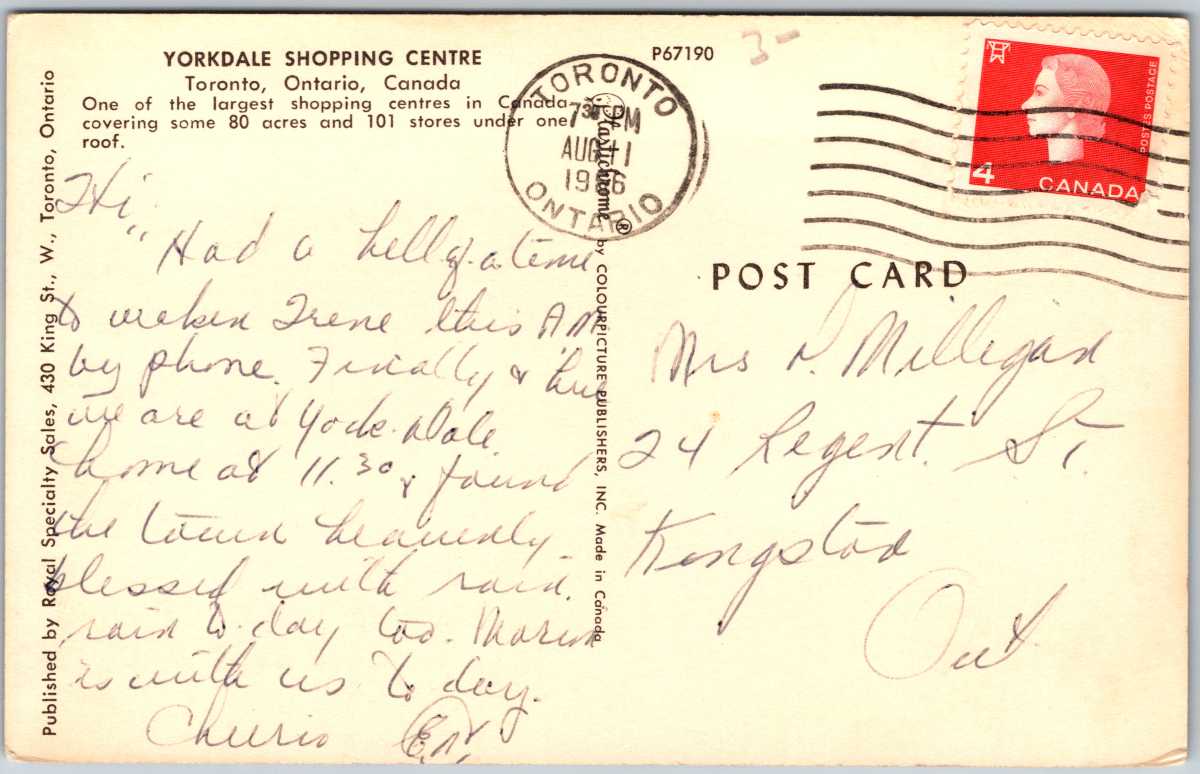 YORKDALE SHOPPING CENTRE
Toronto, Ontario, Canada
One of the largest shopping centres in Canada
covering some 80 acres and 101 stores under one
roof.
P67190
3-
TORONTO
7 PM
AUG 1
19 6
ONTARIO
4
CANADA
POSTES POSTAGE
Hi
" Had a hell of a time
to waken Irene this A.M.
by phone. Finally & here
we are at York-Dale.
home at 11.30 & found
the town heavenly
blessed with rain.
rain to-day too. Marion
is with us to day.
Cheerio
Published by Royal Specialty Sales, 430 King St., W., Toronto, Ontario
Plastichrome® by COLOURPICTURE PUBLISHERS, INC. Made in Canada
POST CARD
Mrs D. Milligan
24 Regent. St.
Kingston
Ont